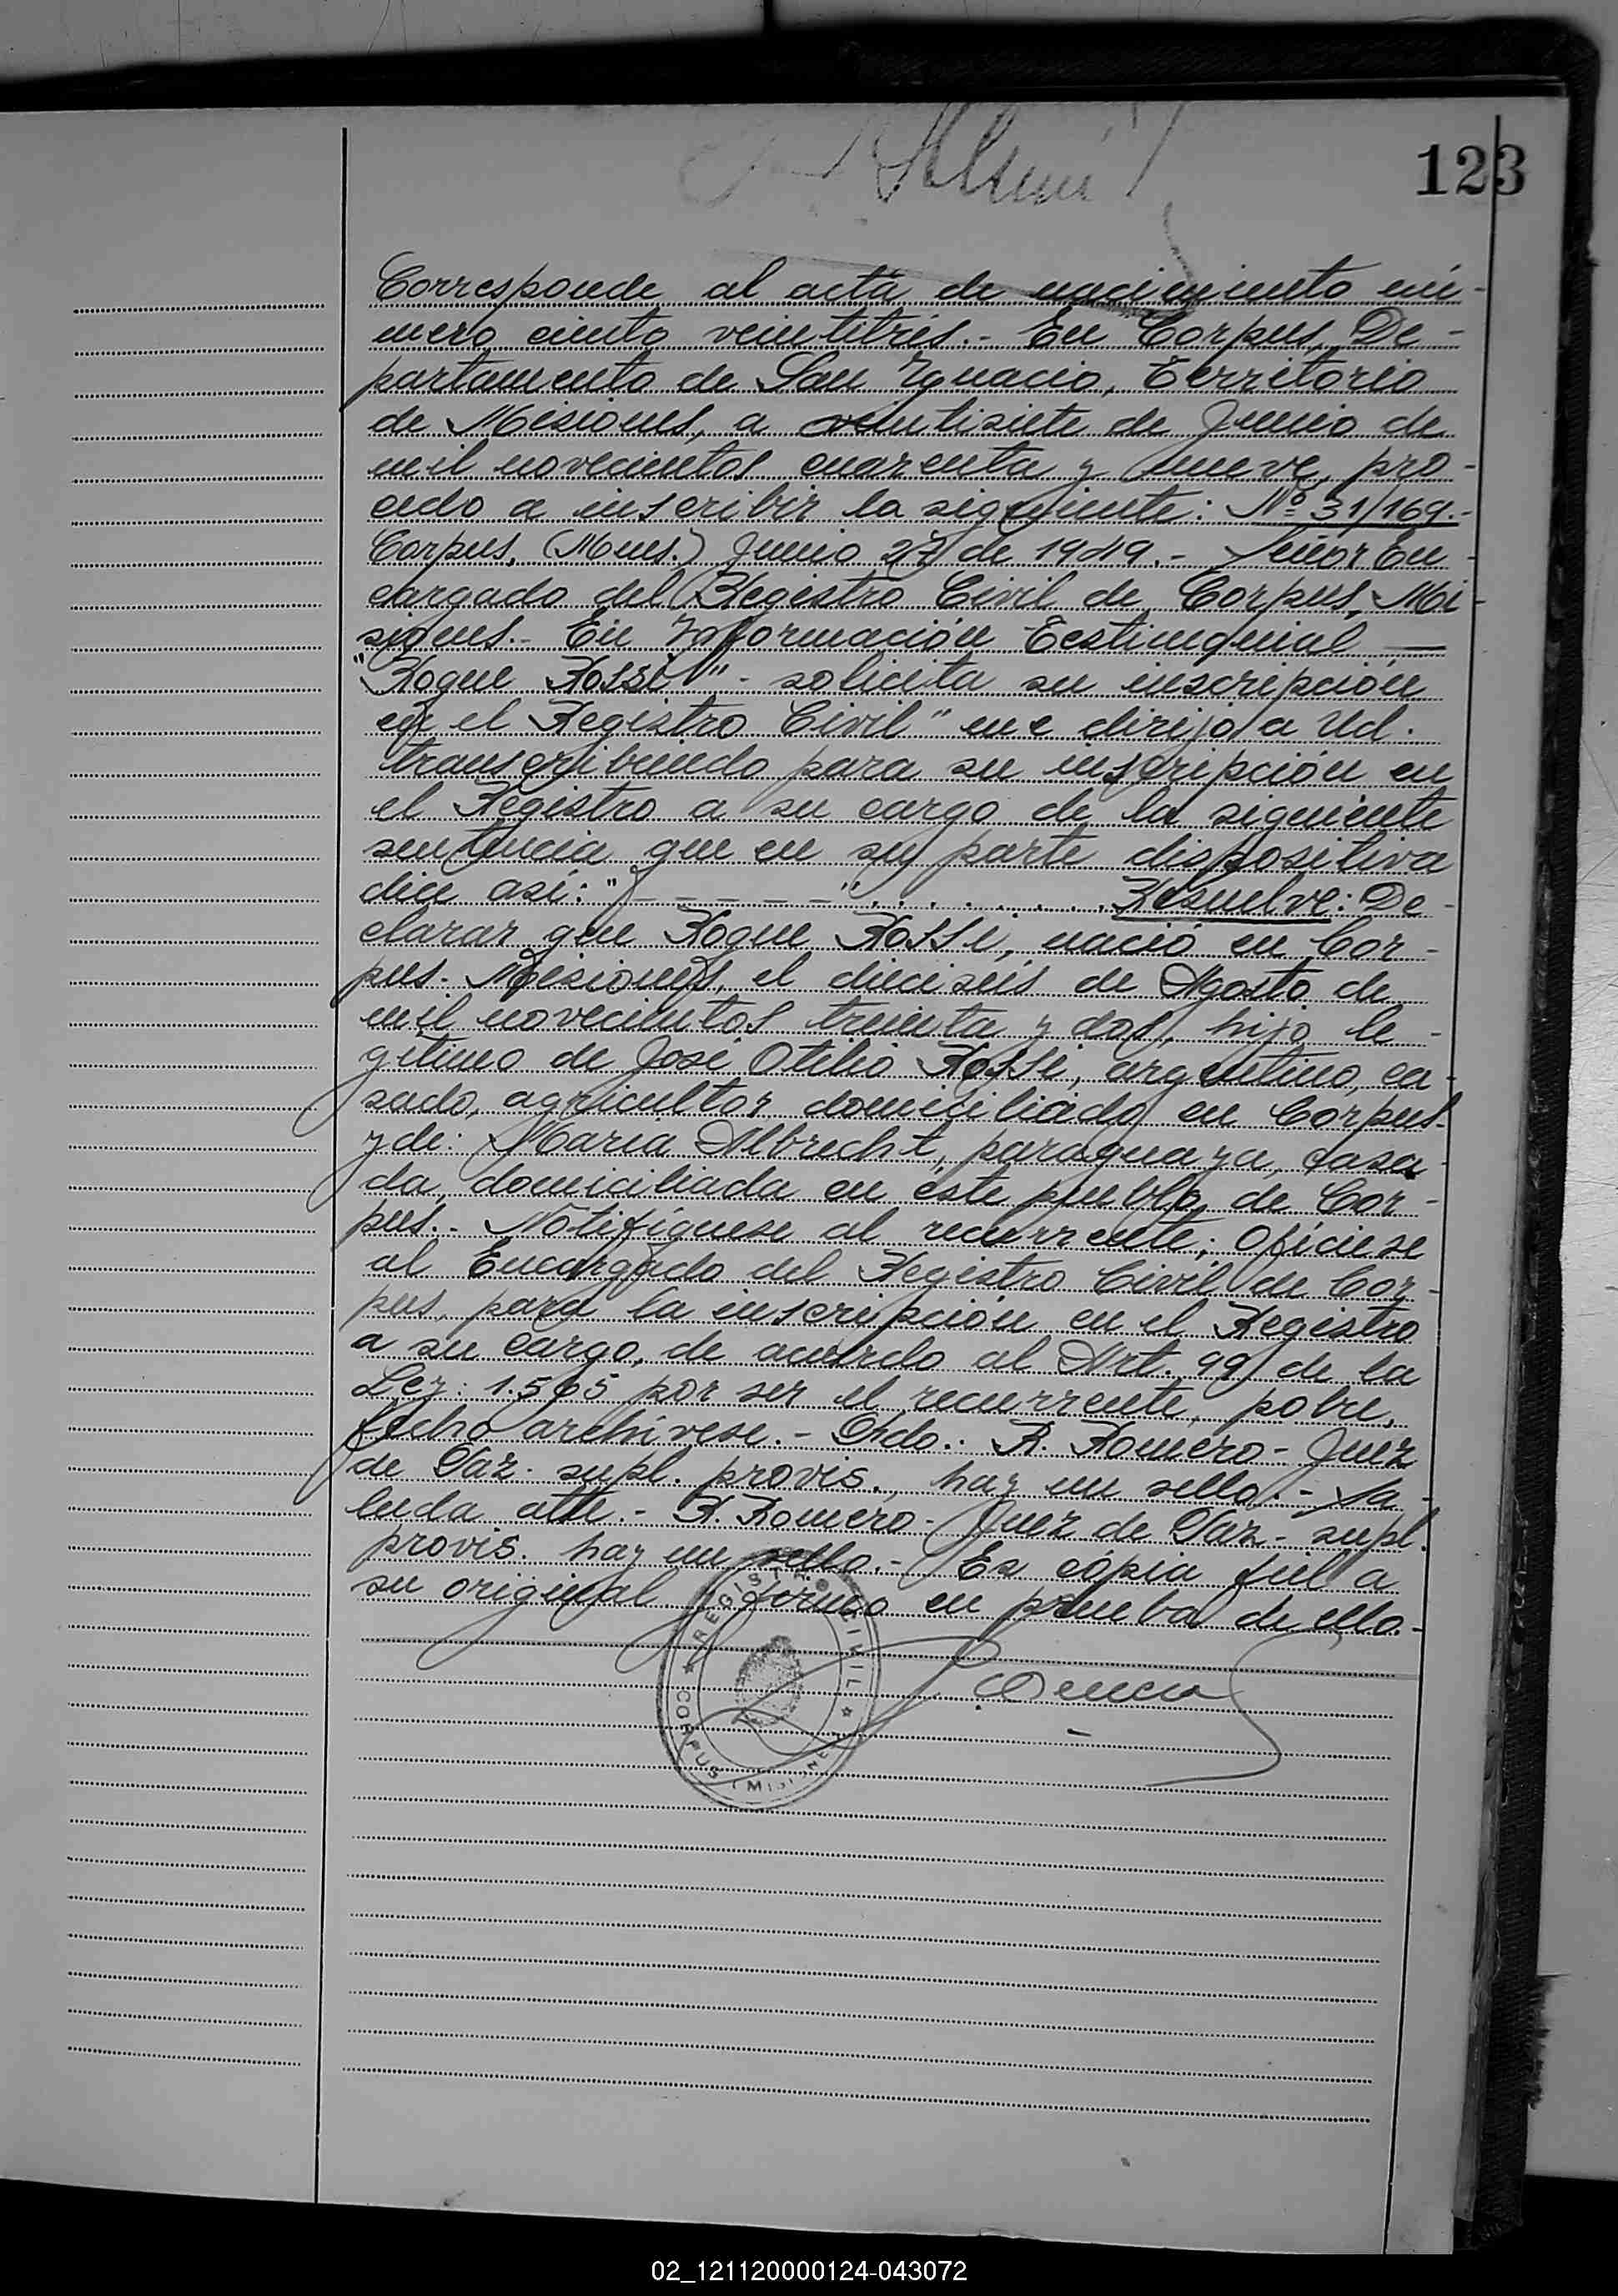 123
Corresponde al acta de nacimiento nú-
mero ciento veintitrés.- En Corpus, De-
partamento de San Ignacio, Territorio
de Misiones, a veintisiete de Junio de
mil novecientos cuarenta y nueve, pro-
cedo a inscribir la siguiente: Nº 31/169.-
Corpus, (Mnes.) Junio 27 de 1949.- Señor En-
cargado del Registro Civil de Corpus, Mi-
siones.- En Información Testimonial —
"Roque Rossi" - solicita su inscripción
en el Registro Civil" me dirijo a Ud.
transcribiendo para su inscripción en
el Registro a su cargo de la siguiente
sentencia que en su parte dispositiva
dice así: "- - - - - -" . . . . . . . . Resuelve: De-
clarar que Roque Rossi, nació en Cor-
pus- Misiones, el dieciseis de Agosto de
mil novecientos treinta y dos, hijo le-
gítimo de José Otilio Rossi, argentino, ca-
sado, agricultor domiciliado en Corpus-
y de: Maria Albrecht, paraguaya, casa-
da, domiciliada en este pueblo de Cor-
pus.- Notifíquese al recurrente; Ofíciese
al Encargado del Registro Civil de Cor-
pus, para la inscripción en el Registro
a su cargo, de acuerdo al Art. 99 de la
Ley: 1.565 por ser el recurrente, pobre,
fecho archívese.- Fdo.: R. Romero - Juez
de Paz- supl. provis., hay un sello.- Sa-
luda atte.- R. Romero - Juez de Paz- supl.
provis. hay un sello.- Es cópia fiel a
su original y firmo en prueba de ello.-
REGISTRO CIVIL
CORPUS (MISIONES)
02_121120000124-043072